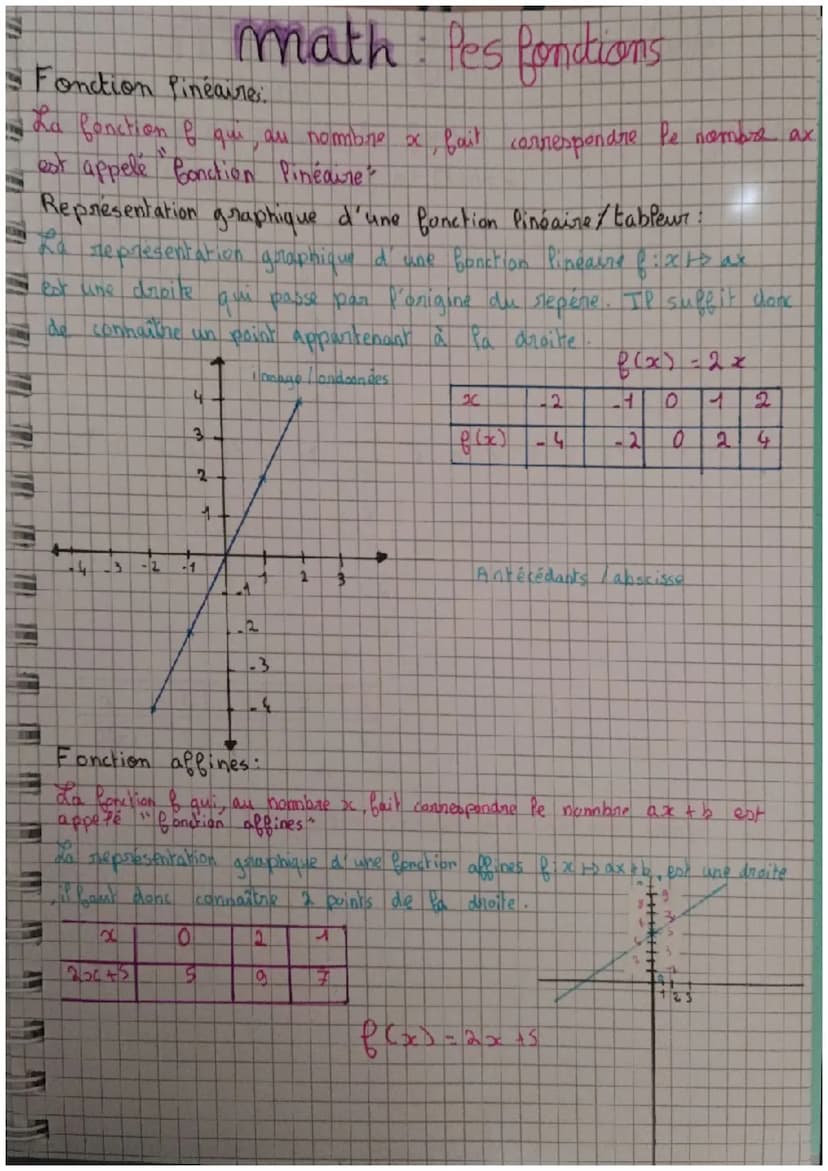 math : les fonctions
Fonction linéaires:
La fonction f qui, au nombre x, fait correspondre le nombre ax
est appelé "fonction linéaire"
Représentation graphique d'une fonction linéaire/tableur :
La représentation graphique d'une fonction linéaire f: x ↦ ax
est une droite qui passe par l'origine du repère. Il suffit donc
de connaître un point appartenant à la droite.
f(x) = 2x
Image/ordonnées
x -2 -1 0 1 2
f(x) -4 -2 0 2 4
4
3
2
1
-4 -3 -2 -1
1 2 3
-1
-2
-3
-4
Antécédants / abscisse
Fonction affines:
La fonction f qui, au nombre x, fait correspondre le nombre ax + b est
appelé "fonction affines"
La représentation graphique d'une fonction affines f: x ↦ ax+b, est une droite
il faut donc connaître 2 points de la droite.
x 0 2 1
2x+5 5 9 7
1 2 3
f(x) = 2x +5